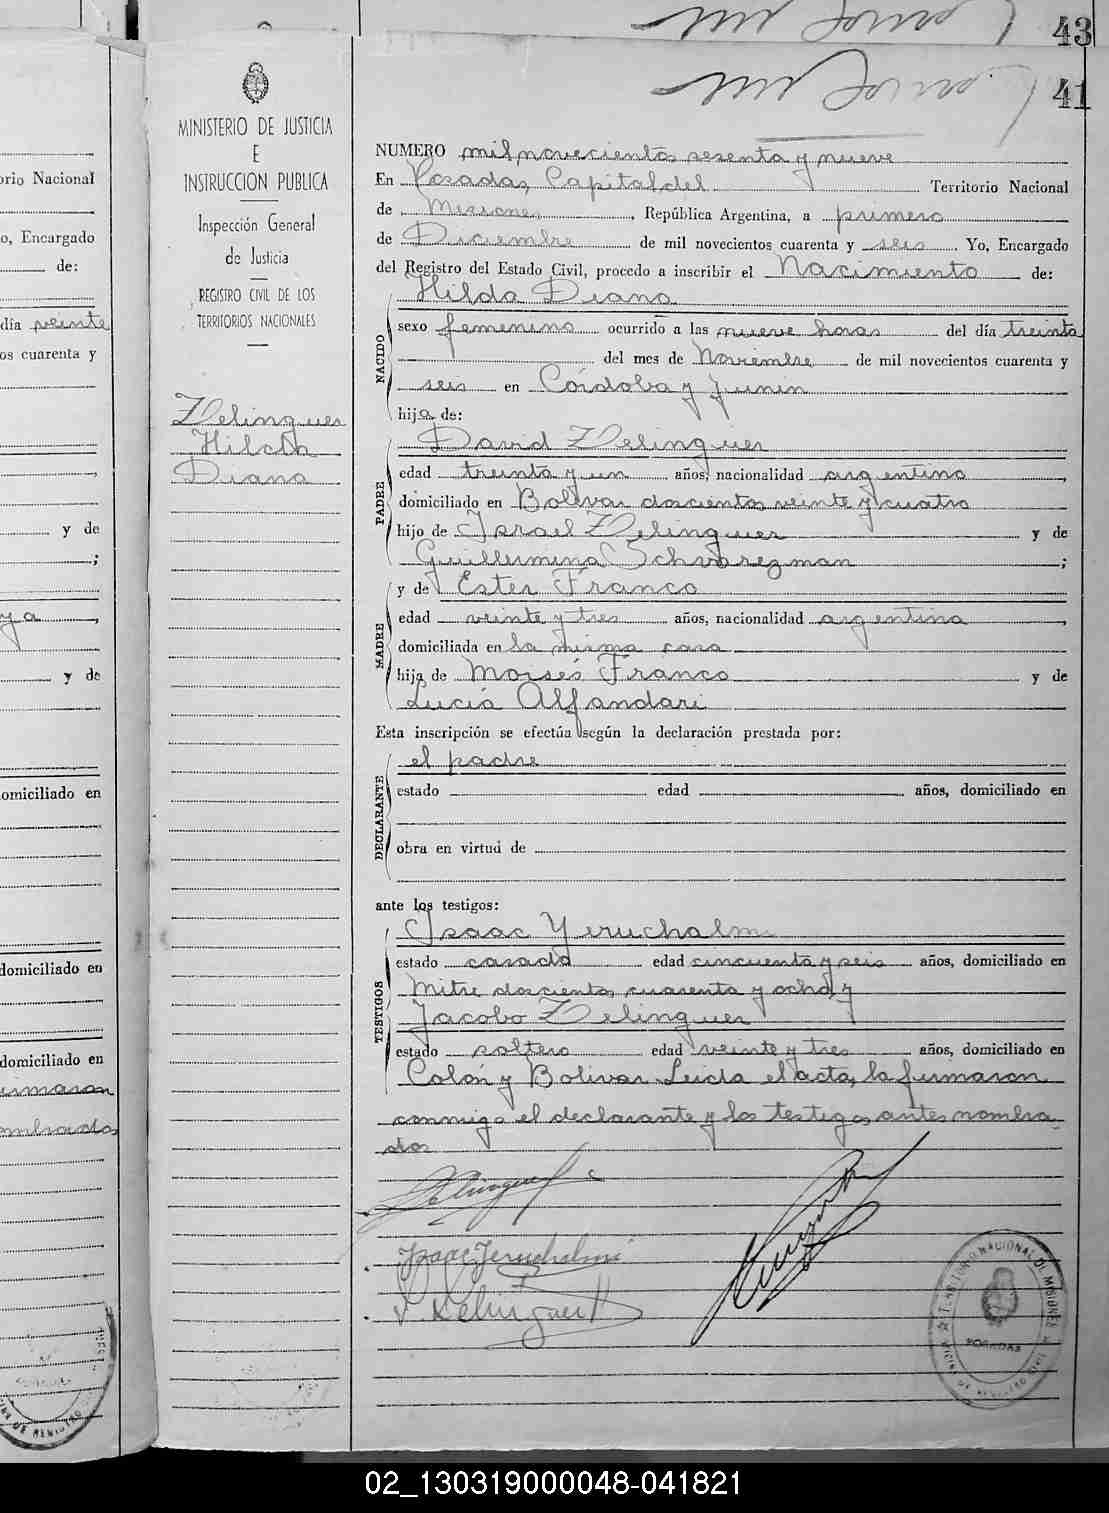 43
41
MINISTERIO DE JUSTICIA
E
INSTRUCCION PUBLICA
Inspección General
de Justicia
REGISTRO CIVIL DE LOS
TERRITORIOS NACIONALES
Zelinguer
Hilda
Diana
NUMERO mil novecientos sesenta y nueve
En Posadas, Capital del Territorio Nacional
de Misiones, República Argentina, a primero
de Diciembre de mil novecientos cuarenta y seis. Yo, Encargado
del Registro del Estado Civil, procedo a inscribir el Nacimiento de:
NACIDO
Hilda Diana
sexo femenino ocurrido a las nueve horas del día treinta
del mes de Noviembre de mil novecientos cuarenta y
seis en Córdoba y Junin
hija de:
PADRE
David Zelinguer
edad treinta y un años, nacionalidad argentina,
domiciliado en Bolivar doscientos veinte y cuatro
hijo de Israel Zelinguer y de
Guillermina Schvarzman;
MADRE
y de Ester Franco
edad veinte y tres años, nacionalidad argentina,
domiciliada en la misma casa
hija de Moisés Franco y de
Lucía Alfandari
Esta inscripción se efectúa según la declaración prestada por:
DECLARANTE
el padre
estado edad años, domiciliado en
obra en virtud de
ante los testigos:
TESTIGOS
Isaac Yeruchalmi
estado casado edad cincuenta y seis años, domiciliado en
Mitre doscientos cuarenta y ocho, y
Jacobo Zelinguer
estado soltero edad veinte y tres años, domiciliado en
Colón y Bolivar. Leida el acta, la firmaron
conmigo el declarante y los testigos antes nombra-
dos
Isaac Jeruchalmi
J. Zelinguer
TERRITORIO NACIONAL DE MISIONES
POSADAS
OFICINA DE REGISTRO CIVIL
orio Nacional
o, Encargado
de:
día veinte
os cuarenta y
y de
;
ya,
y de
omiciliado en
domiciliado en
domiciliado en
firmaron
ombrados
02_130319000048-041821